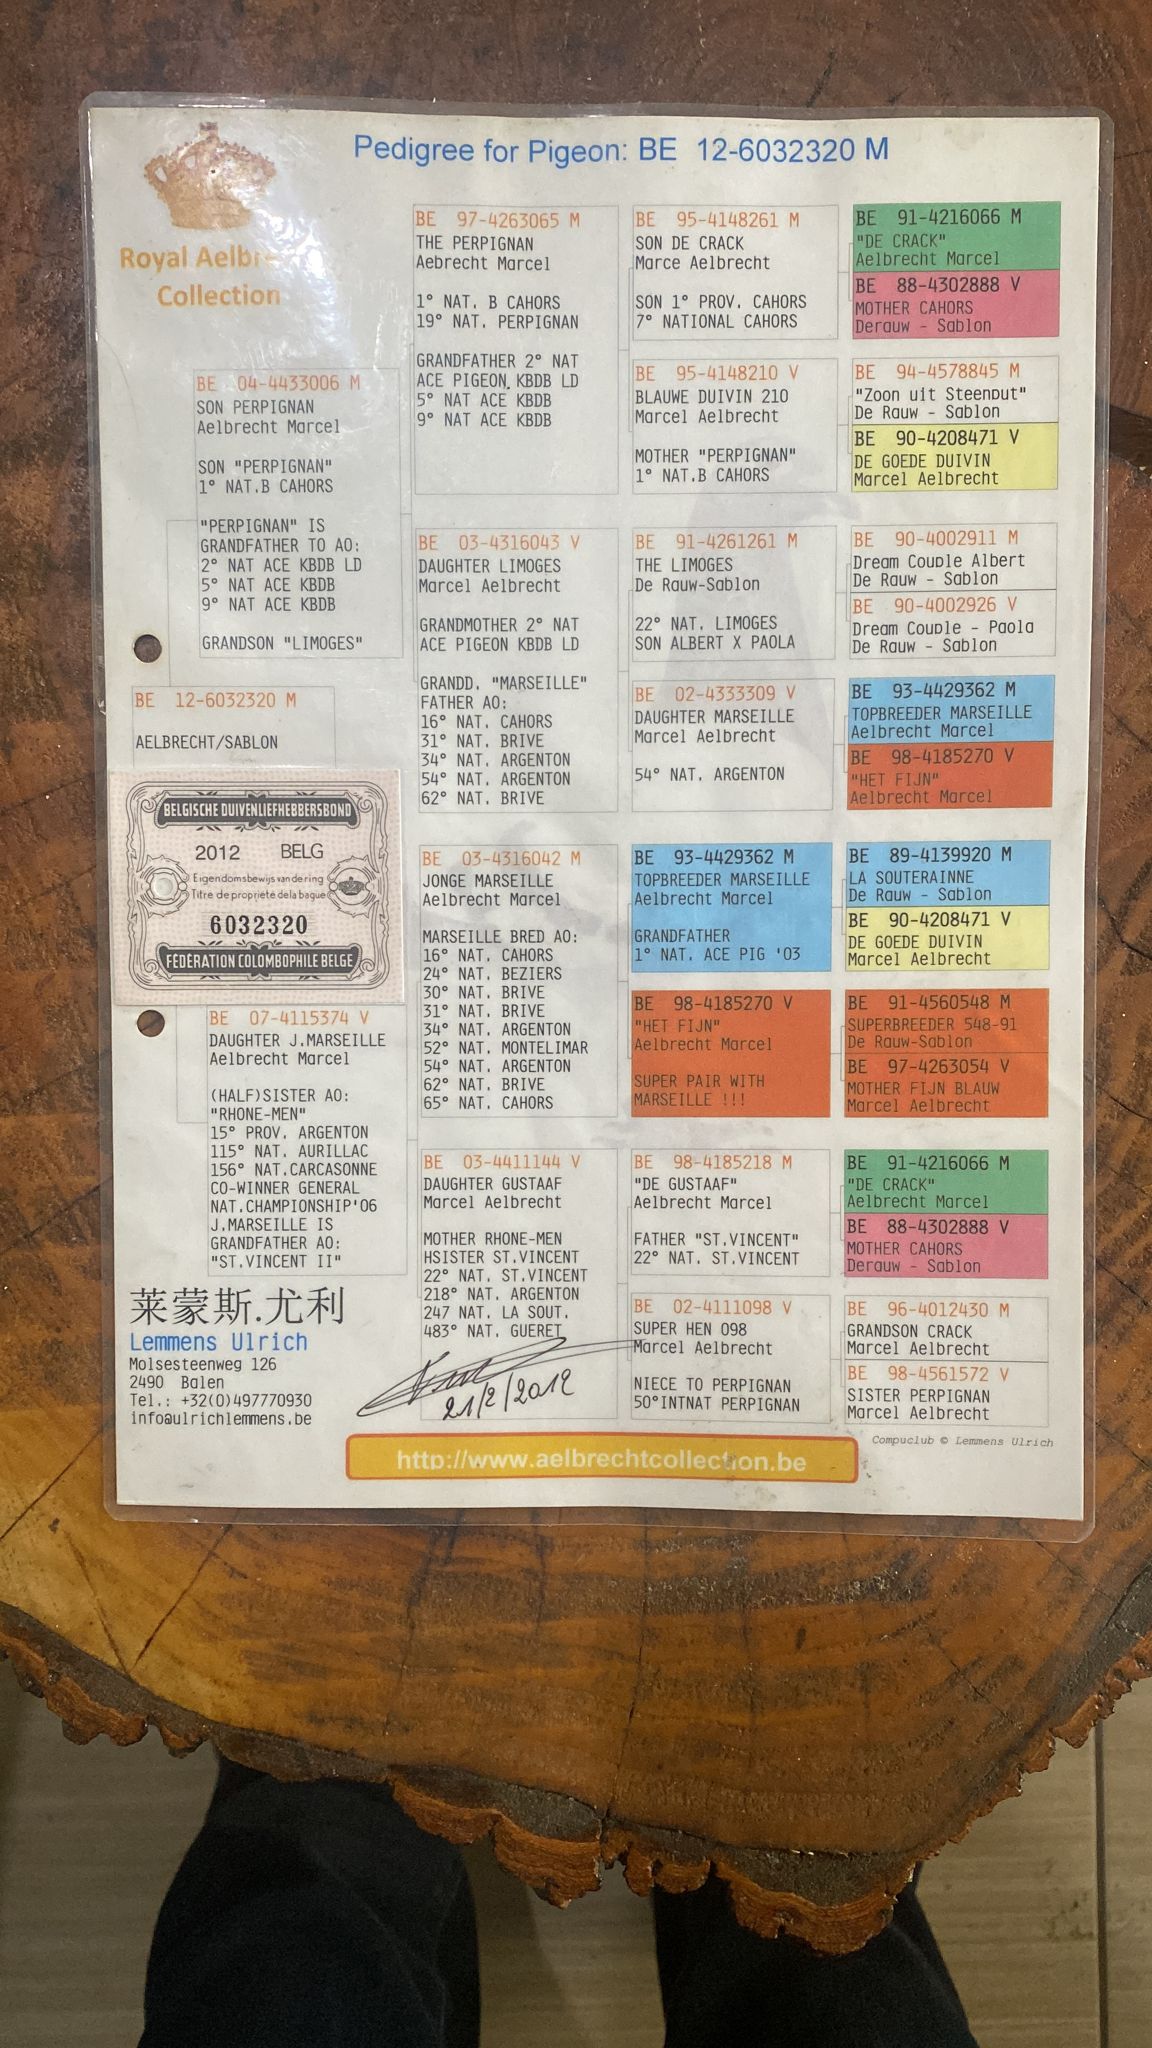 Pedigree for Pigeon: BE 12-6032320 M
Royal
Collection
BE 04-4433006 M
SON PERPIGNAN
Aelbrecht Marcel
SON "PERPIGNAN"
1° NAT.B CAHORS
"PERPIGNAN" IS
GRANDFATHER TO AO:
2° NAT ACE KBDB LD
5° NAT ACE KBDB
9° NAT ACE KBDB
GRANDSON "LIMOGES"
BE 12-6032320 M
AELBRECHT/SABLON
BELGISCHE DUIVENLIEFHEBBERSBOND
2012 BELG
Eigendomsbewijs van de ring
Titre de propriété de la bague
6032320
FÉDÉRATION COLOMBOPHILE BELGE
BE 07-4115374 V
DAUGHTER J.MARSEILLE
Aelbrecht Marcel
(HALF)SISTER AO:
"RHONE-MEN"
15° PROV. ARGENTON
115° NAT. AURILLAC
156° NAT.CARCASONNE
CO-WINNER GENERAL
NAT.CHAMPIONSHIP'06
J.MARSEILLE IS
GRANDFATHER AO:
"ST.VINCENT II"
BE 97-4263065 M
THE PERPIGNAN
Aebrecht Marcel
1° NAT. B CAHORS
19° NAT. PERPIGNAN
GRANDFATHER 2° NAT
ACE PIGEON KBDB LD
5° NAT ACE KBDB
9° NAT ACE KBDB
BE 03-4316043 V
DAUGHTER LIMOGES
Marcel Aelbrecht
GRANDMOTHER 2° NAT
ACE PIGEON KBDB LD
GRANDD. "MARSEILLE"
FATHER AO:
16° NAT. CAHORS
31° NAT. BRIVE
34° NAT. ARGENTON
54° NAT. ARGENTON
62° NAT. BRIVE
BE 03-4316042 M
JONGE MARSEILLE
Aelbrecht Marcel
MARSEILLE BRED AO:
16° NAT. CAHORS
24° NAT. BEZIERS
30° NAT. BRIVE
31° NAT. BRIVE
34° NAT. ARGENTON
52° NAT. MONTELIMAR
54° NAT. ARGENTON
62° NAT. BRIVE
65° NAT. CAHORS
BE 03-4411144 V
DAUGHTER GUSTAAF
Marcel Aelbrecht
MOTHER RHONE-MEN
HSISTER ST.VINCENT
22° NAT. ST.VINCENT
218° NAT. ARGENTON
247 NAT. LA SOUT.
483° NAT. GUERET
21/2/2012
BE 95-4148261 M
SON DE CRACK
Marce Aelbrecht
SON 1° PROV. CAHORS
7° NATIONAL CAHORS
BE 95-4148210 V
BLAUWE DUIVIN 210
Marcel Aelbrecht
MOTHER "PERPIGNAN"
1° NAT.B CAHORS
BE 91-4261261 M
THE LIMOGES
De Rauw-Sablon
22° NAT. LIMOGES
SON ALBERT X PAOLA
BE 02-4333309 V
DAUGHTER MARSEILLE
Marcel Aelbrecht
54° NAT. ARGENTON
BE 93-4429362 M
TOPBREEDER MARSEILLE
Aelbrecht Marcel
GRANDFATHER
1° NAT. ACE PIG '03
BE 98-4185270 V
"HET FIJN"
Aelbrecht Marcel
SUPER PAIR WITH
MARSEILLE !!!
BE 98-4185218 M
"DE GUSTAAF"
Aelbrecht Marcel
FATHER "ST.VINCENT"
22° NAT. ST.VINCENT
BE 02-4111098 V
SUPER HEN 098
Marcel Aelbrecht
NIECE TO PERPIGNAN
50°INTNAT PERPIGNAN
BE 91-4216066 M
"DE CRACK"
Aelbrecht Marcel
BE 88-4302888 V
MOTHER CAHORS
Derauw - Sablon
BE 94-4578845 M
"Zoon uit Steenput"
De Rauw - Sablon
BE 90-4208471 V
DE GOEDE DUIVIN
Marcel Aelbrecht
BE 90-4002911 M
Dream Couple Albert
De Rauw - Sablon
BE 90-4002926 V
Dream Couple - Paola
De Rauw - Sablon
BE 93-4429362 M
TOPBREEDER MARSEILLE
Aelbrecht Marcel
BE 98-4185270 V
"HET FIJN"
Aelbrecht Marcel
BE 89-4139920 M
LA SOUTERAINNE
De Rauw - Sablon
BE 90-4208471 V
DE GOEDE DUIVIN
Marcel Aelbrecht
BE 91-4560548 M
SUPERBREEDER 548-91
De Rauw-Sablon
BE 97-4263054 V
MOTHER FIJN BLAUW
Marcel Aelbrecht
BE 91-4216066 M
"DE CRACK"
Aelbrecht Marcel
BE 88-4302888 V
MOTHER CAHORS
Derauw - Sablon
BE 96-4012430 M
GRANDSON CRACK
Marcel Aelbrecht
BE 98-4561572 V
SISTER PERPIGNAN
Marcel Aelbrecht
莱蒙斯.尤利
Lemmens Ulrich
Molsesteenweg 126
2490 Balen
Tel.: +32(0)497770930
info@ulrichlemmens.be
Compuclub © Lemmens Ulrich
http://www.aelbrechtcollection.be